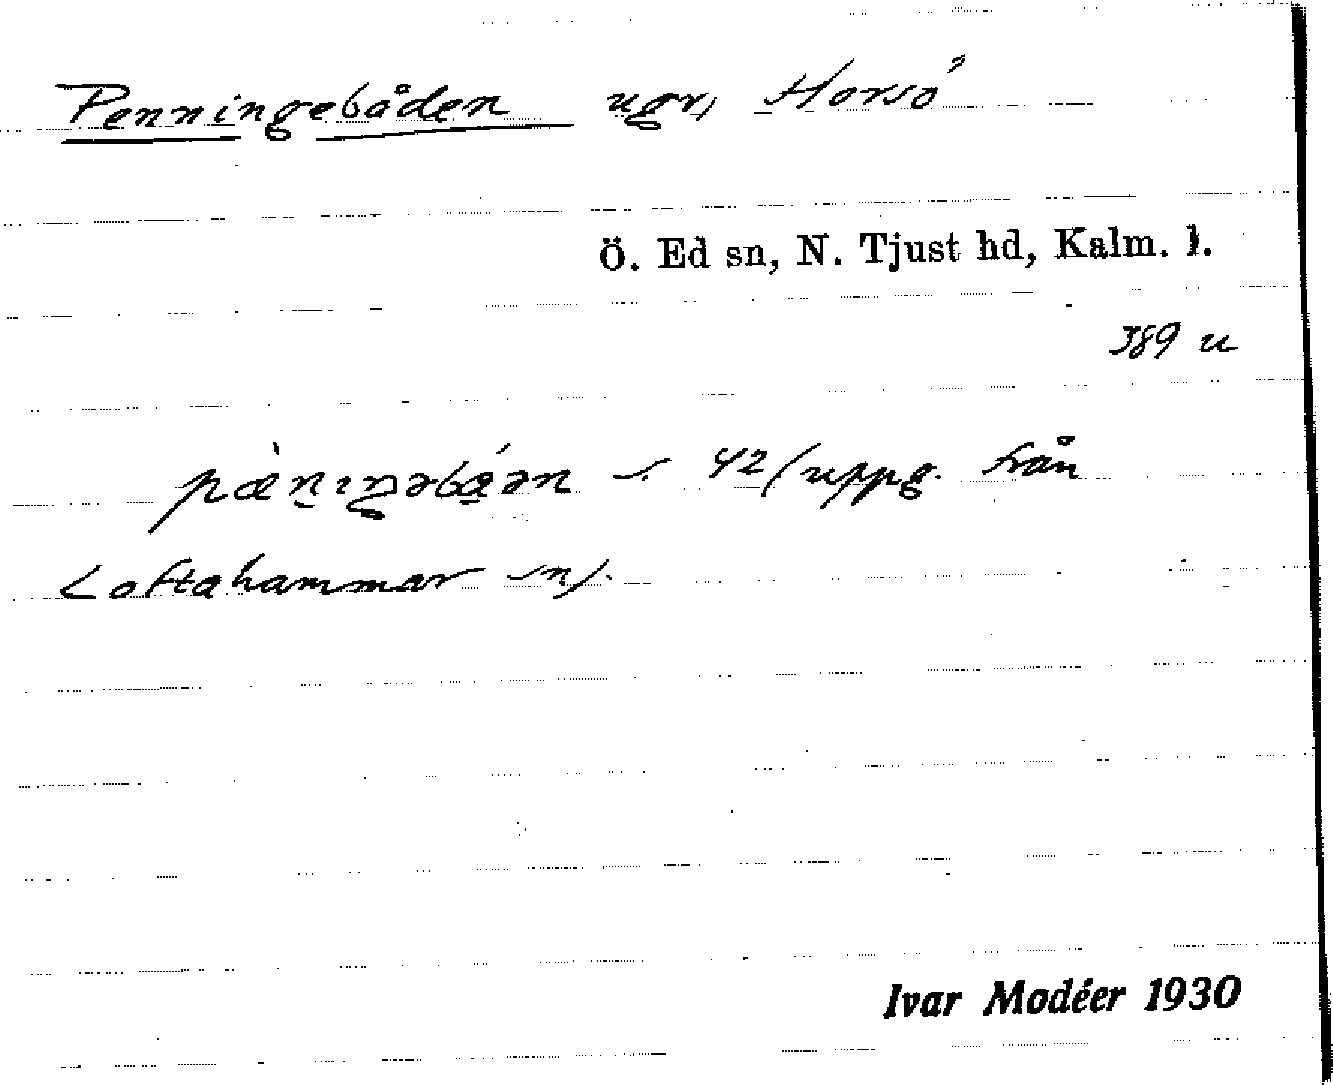 Penningebåden ugr, Horsö
Ö. Ed sn, N. Tjust hd, Kalm. l.
389 u
pæ̀nıŋəbáən s. 42 (uppg. från
Loftahammar sn).
Ivar Modéer 1930